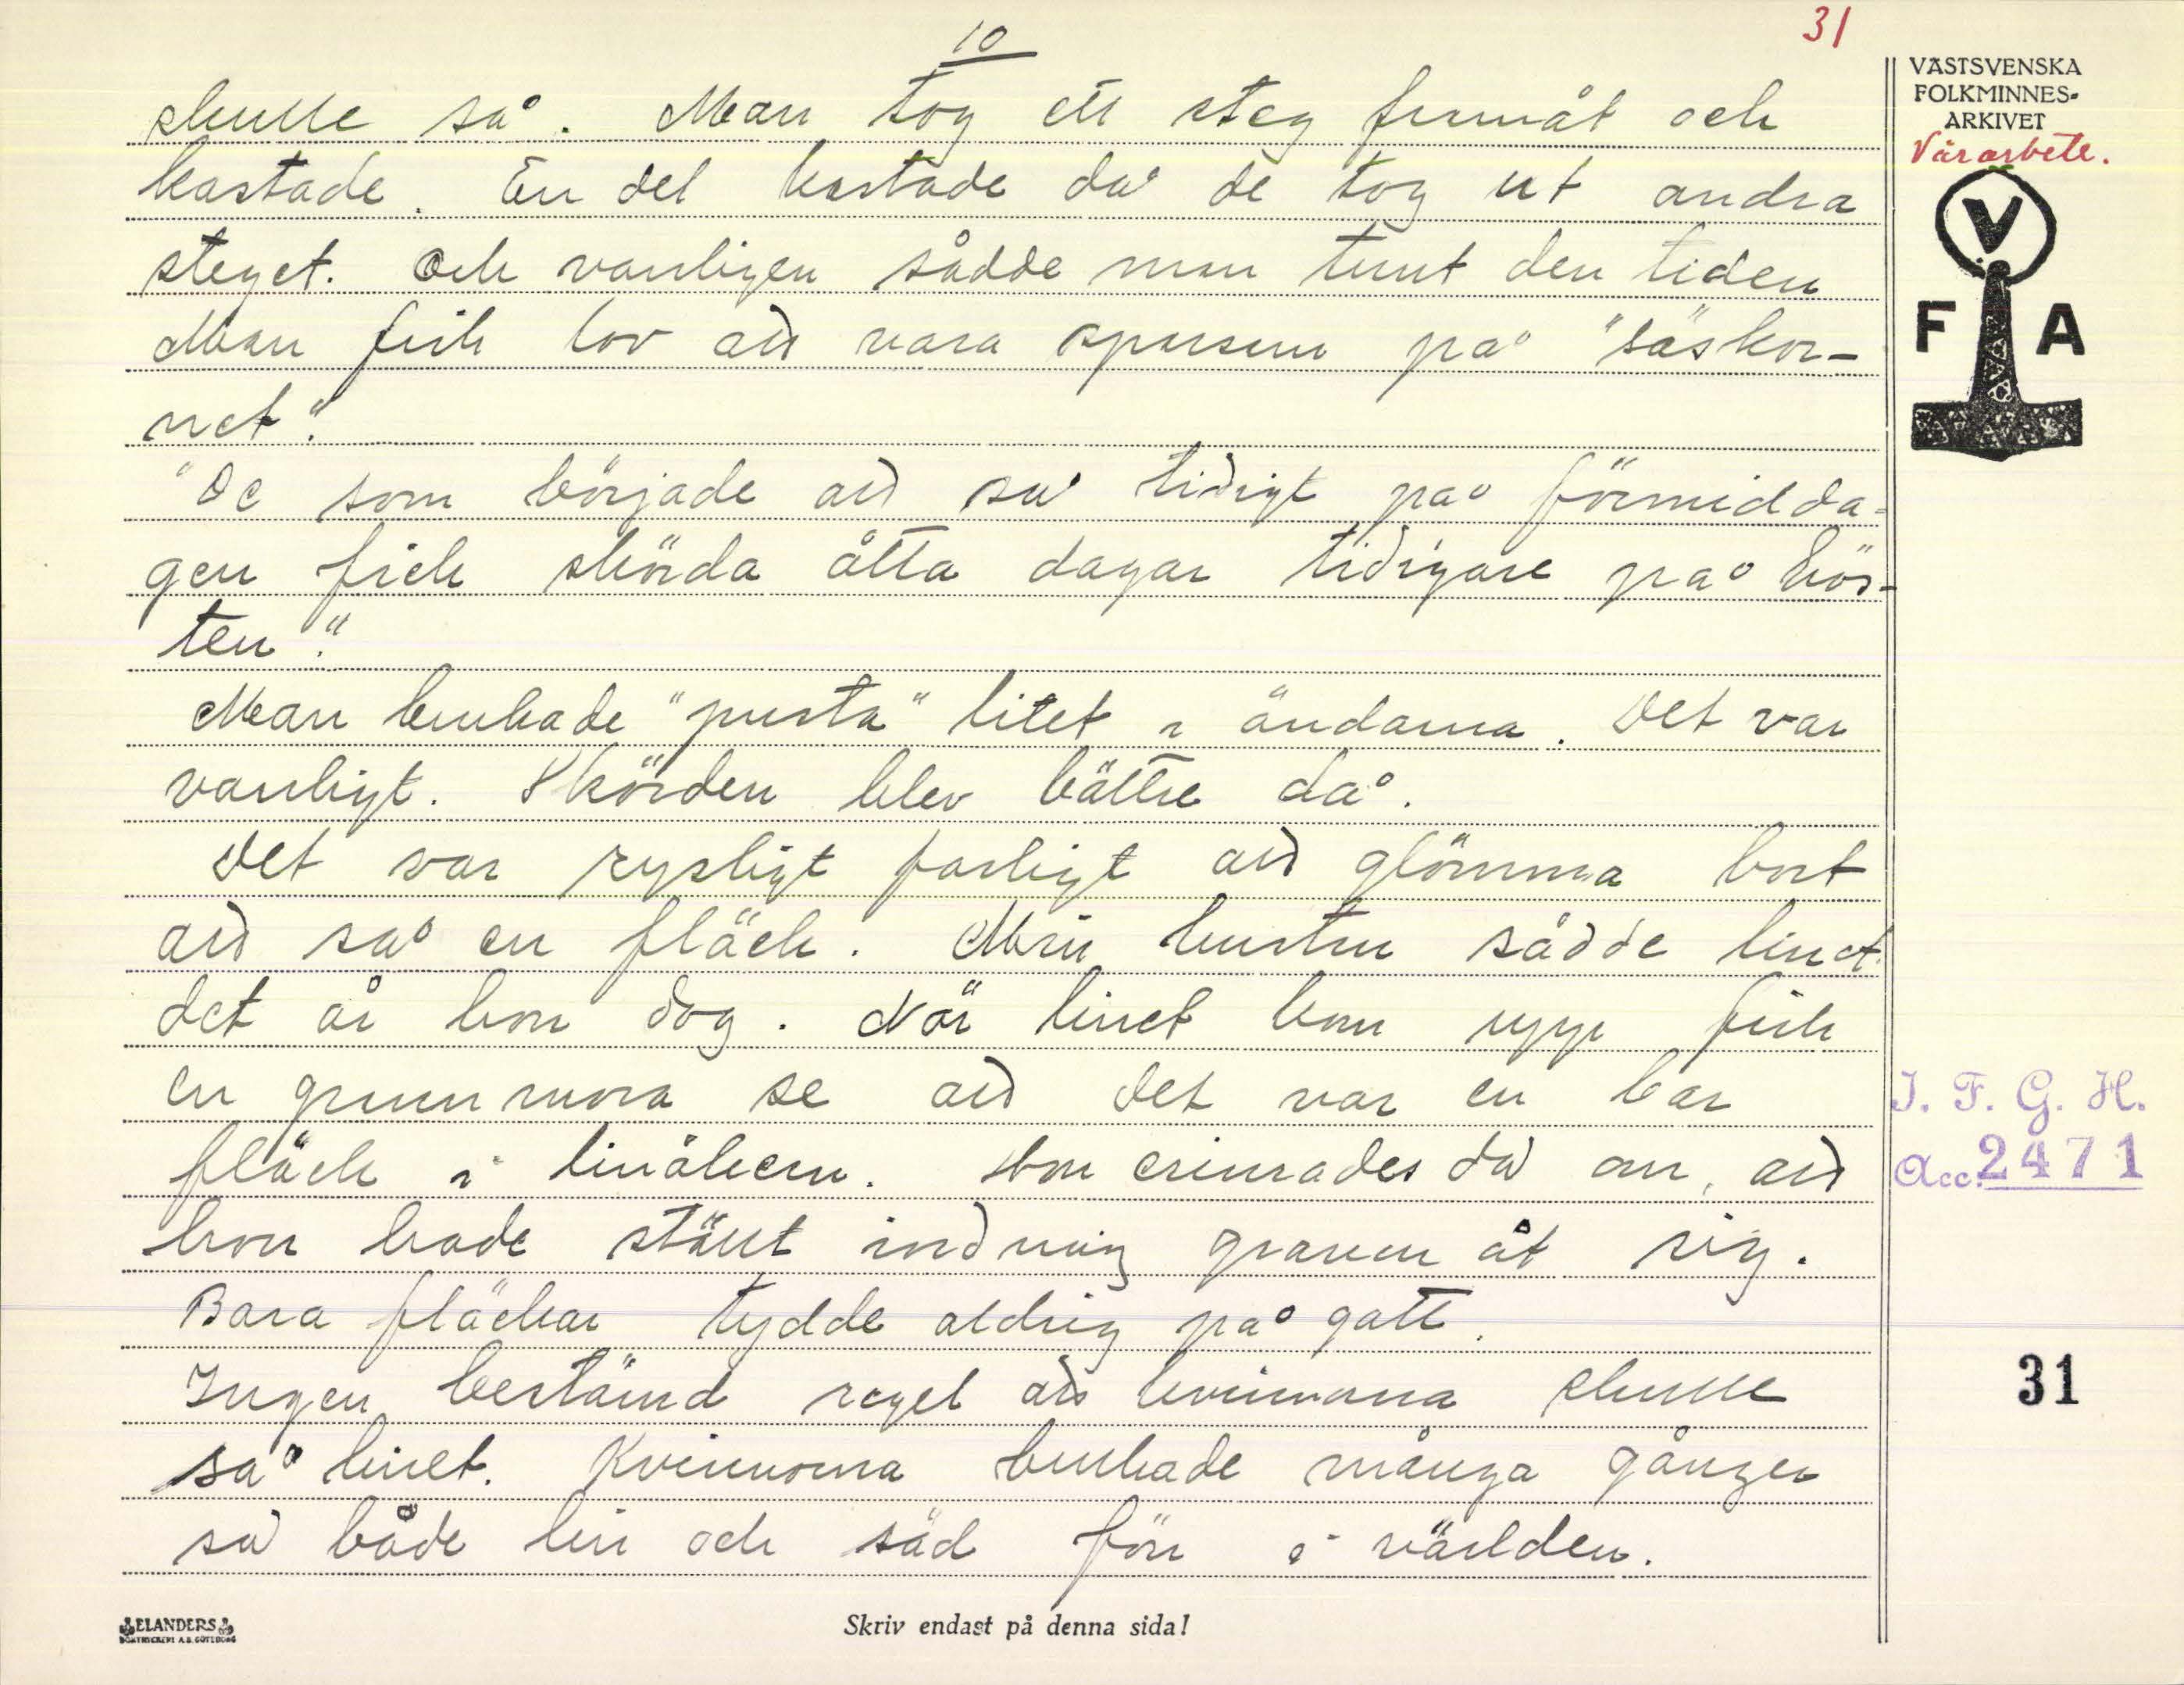 10
31
skulle så. Man tog ett steg framåt och
kastade. En del kastade då de tog ut andra
steget. Och vanligen sådde man tunt den tiden
Man fick lov att vara sparsam på "såskor-
net".
"De som började att så tidigt på förmidda-
gen fick skörda åtta dagar tidigare på hös-
ten".
Man brukade "pusta" litet i ändarna. Det var
vanligt. Skörden blev bättre då.
Det var rysligt farligt att glömma bort
att så en fläck. Min hustru sådde linet
det år hon dog. När linet kom upp fick
en grannmora se att det var en bar
fläck i linåkern. Hon erinrades då om, att
hon hade stänt indning graven åt sig.
Bara fläckar tydde aldrig på gott.
Ingen bestämd regel att kvinnorna skulle
så linet. Kvinnorna brukade många gånger
så både lin och säd förr i världen.
VÄSTSVENSKA
FOLKMINNES-
ARKIVET
Vårarbete.
V
F A
I. F. G. H.
Acc. 2471
31
ELANDERS
BOKTRYCKERI A.B. GÖTEBORG
Skriv endast på denna sida!